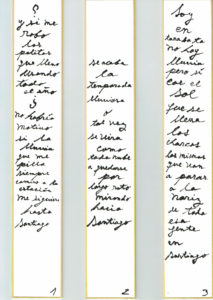 ¿
y si me
robo
los
potitos
que llevo
llorando
todo
el año
?
no habría
motivo
si la
lluvia
que me
pilla
siempre
camino a la
estación
me siguiera
hasta
Santiago
1
se acaba
la
temporada
lluviosa
y
tal vez
se
como
cada nube
a quedarse
por
largo rato
mirando
hacia
Santiago
2
Soy
en
no hay
lluvia
pero sí
cae el
sol
que se
llena
los
charcos
los mismos
que van
a parar
a la
nariz
de toda
esa
gente
en
Santiago
3